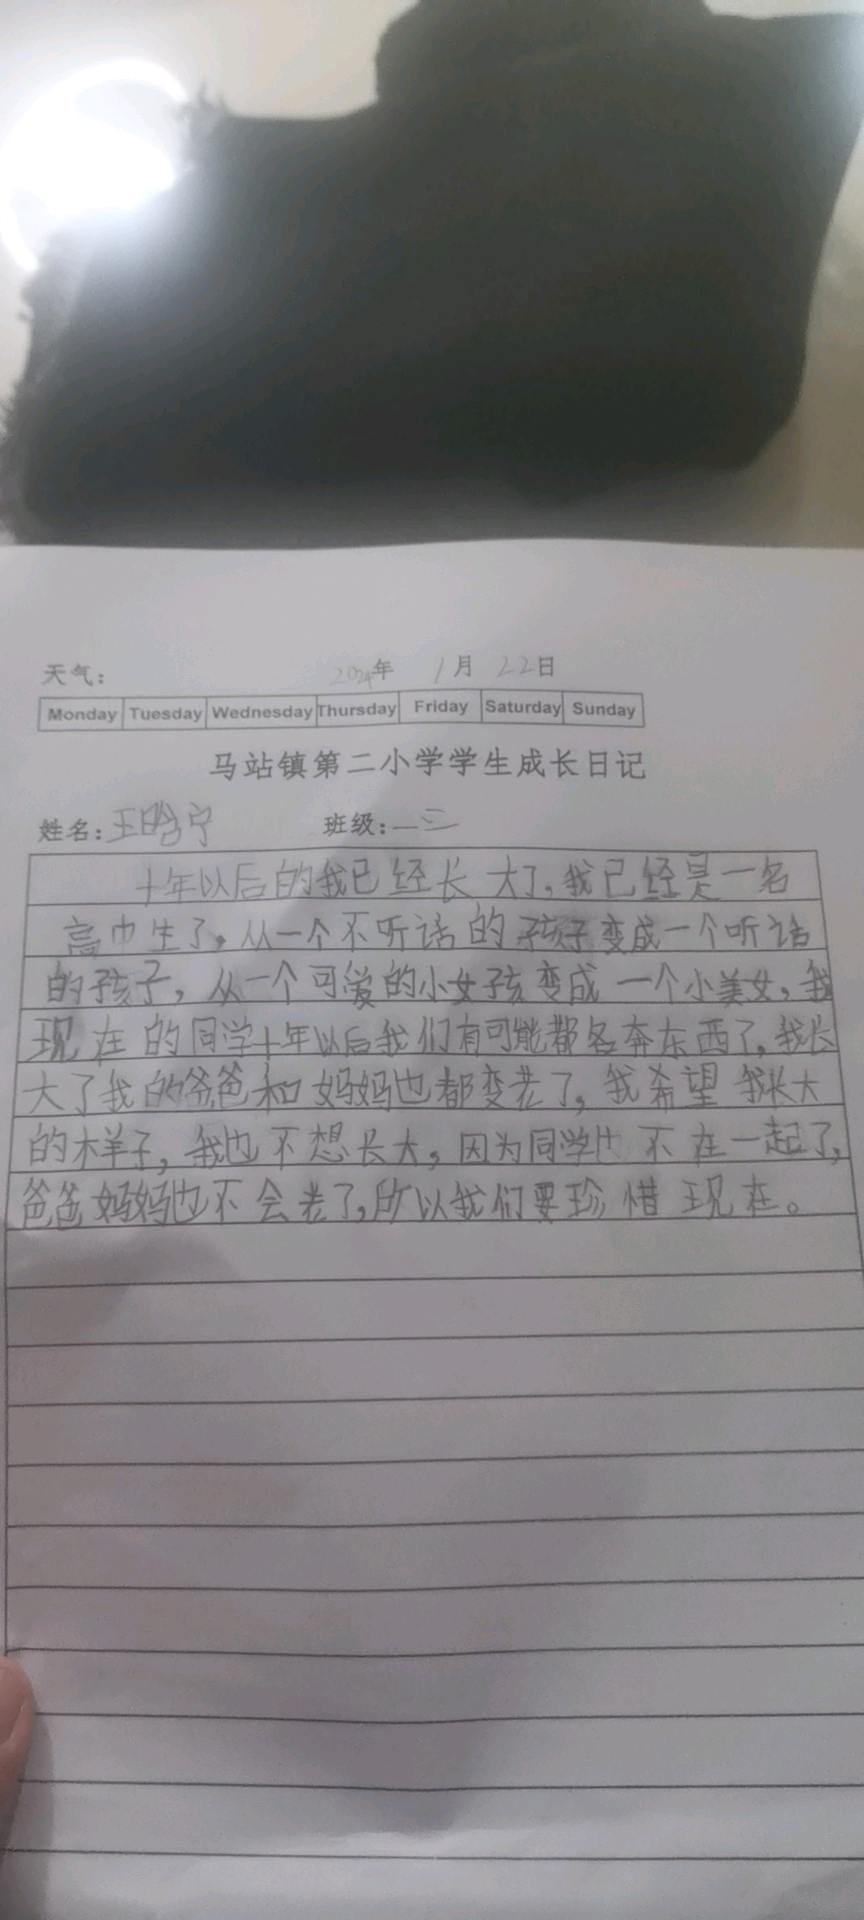 天气： 2024年 1月 22日
Monday Tuesday Wednesday Thursday Friday Saturday Sunday
马站镇第二小学学生成长日记
姓名：王晗宁 班级：二三
十年以后的我已经长大了，我已经是一名
高中生了，从一个不听话的孩子变成一个听话
的孩子，从一个可爱的小女孩变成一个小美女，我
现在的同学十年以后我们有可能都各奔东西了，我长
大了我的爸爸和妈妈也都变老了，我希望我长大
的样子，我也不想长大，因为同学也不在一起了，
爸爸妈妈也不会老了，所以我们要珍惜现在。